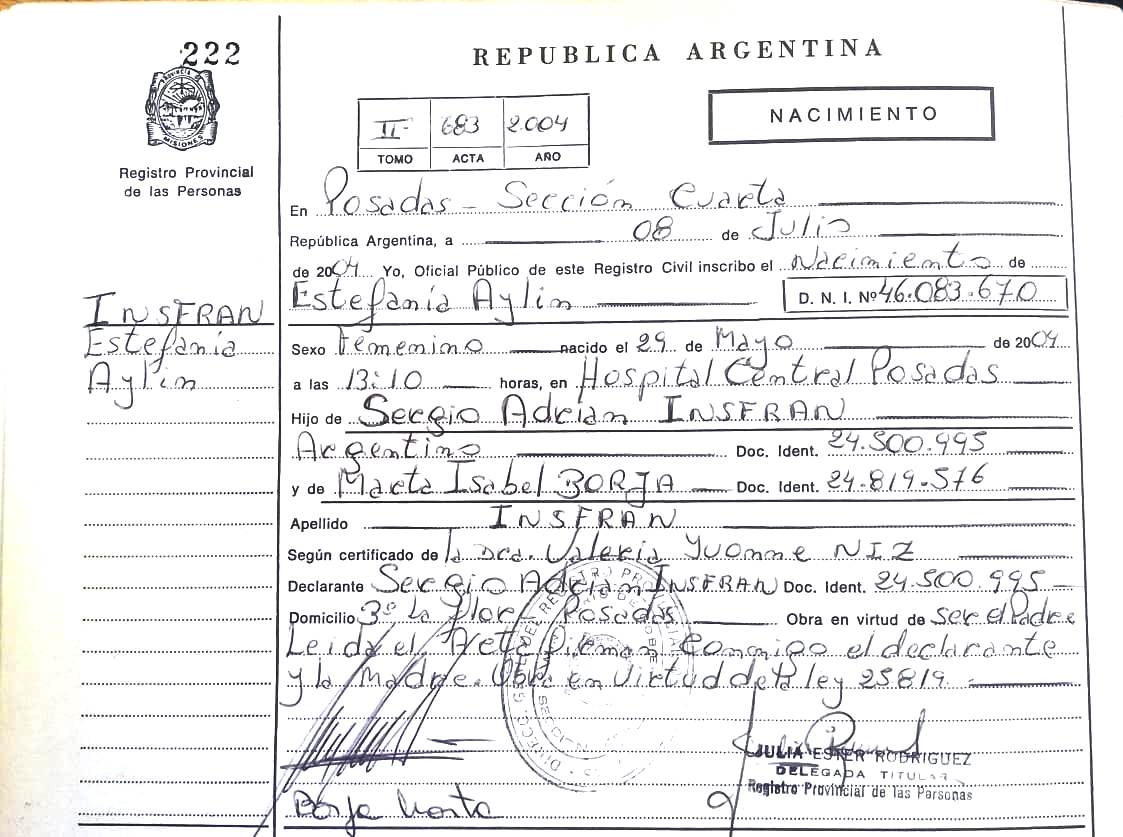 222
REPUBLICA ARGENTINA
PROVINCIA DE
MISIONES
II 683 2.004
TOMO ACTA AÑO
NACIMIENTO
Registro Provincial
de las Personas
En Posadas - Sección Cuarta
República Argentina, a 08 de Julio
de 2004 Yo, Oficial Público de este Registro Civil inscribo el Nacimiento de
Estefanía Aylin D. N. I. Nº 46.083.670
INSFRAN
Estefanía
Aylin
Sexo Femenino nacido el 29 de Mayo de 2004
a las 13:10 horas, en Hospital Central Posadas
Hijo de Sergio Adrian INSFRAN
Argentino Doc. Ident. 24.500.995
y de Marta Isabel BORJA Doc. Ident. 24.819.576
Apellido INSFRAN
Según certificado de la Dra. Valeria Yvonne NIZ
Declarante Sergio Adrian INSFRAN Doc. Ident. 24.500.995
Domicilio 3º la Flor Posadas Obra en virtud de ser el Padre
Leida el Acta Firman Conmigo el declarante
y la Madre. Obra en Virtud de la ley 25819.
JULIA ESTER RODRIGUEZ
DELEGADA TITULAR
Registro Provincial de las Personas
Borja Marta